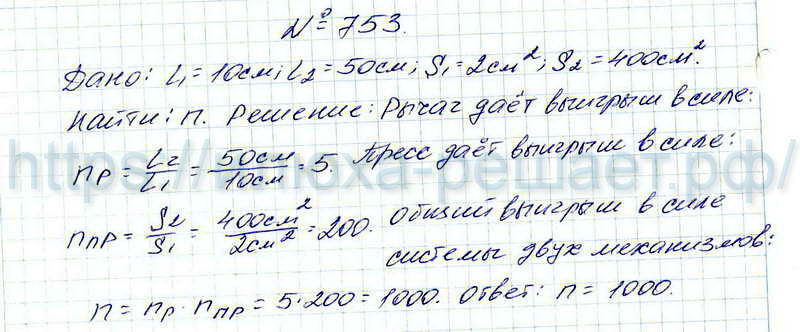 № 753.
Дано: L₁ = 10см; L₂ = 50см; S₁ = 2см²; S₂ = 400см².
Найти: n. Решение: Рычаг даёт выигрыш в силе:
nр = L₂/L₁ = 50см/10см = 5. Пресс даёт выигрыш в силе:
nпр = S₂/S₁ = 400см²/2см² = 200. Общий выигрыш в силе
системы двух механизмов:
n = nр · nпр = 5·200 = 1000. Ответ: n = 1000.